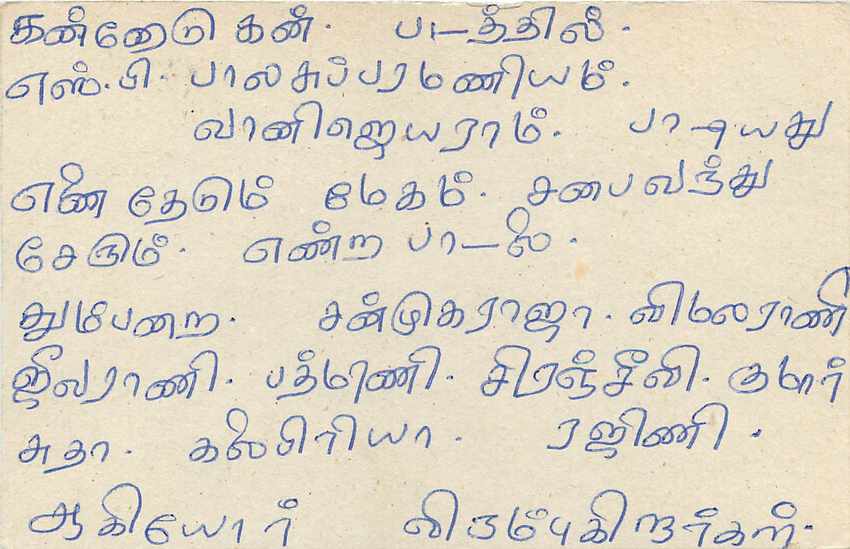 கன்னேடு கன். படத்தில்.
எஸ்.பி. பாலசுப்பரமணியம்.
வானிஜெயராம். பாடியது
எண தேடும் மேகம். சபைவந்து
சேரும். என்ற பாடல்.
தும்பேறை. சன்முகராஜா. விமலராணி
ஜீவராணி. பத்மினி. சிரஞ்சீவி. குமார்
சுதா. கலபிரியா. ரஜிணி.
ஆகியோர் விரும்புகிறர்கள்.